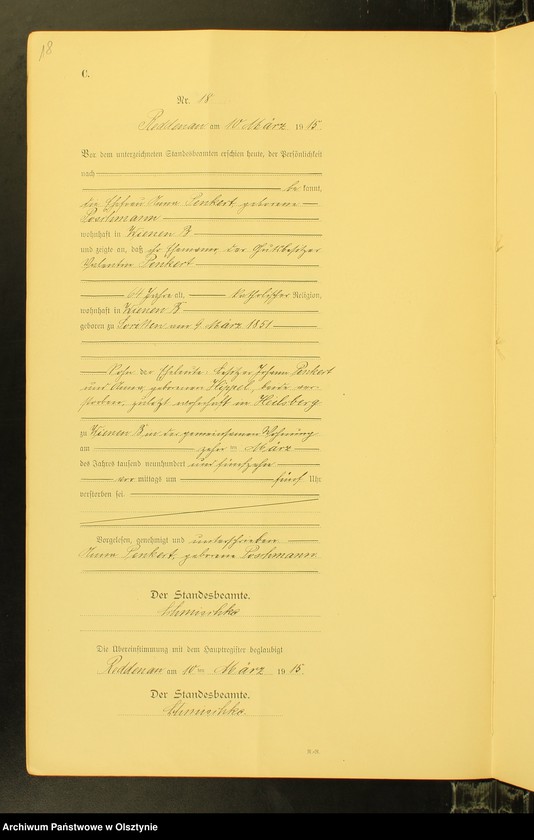 18
C.
Nr. 18
Reddenau am 10 März 1915.
Vor dem unterzeichneten Standesbeamten erschien heute, der Persönlichkeit
nach
be kannt,
die Ehefrau Anna Penkert, geborene
Poschmann
wohnhaft in Kienen B
und zeigte an, daß ihr Ehemann, der Gutsbesitzer
Valentin Penkert
64 Jahre alt, katholischer Religion,
wohnhaft in Kienen B
geboren zu am 9 März 1851
Sohn der Eheleute: Besitzer Johann Penkert
und Anna, geborenen Hippel, beide ver-
storben, zuletzt wohnhaft in Heilsberg
zu Kienen B in der gemeinsamen Wohnung
am zehn ten März
des Jahres tausend neunhundert und fünfzehn
vor mittags um fünf Uhr
verstorben sei.
Vorgelesen, genehmigt und unterschrieben
Anna Penkert, geborene Poschmann.
Der Standesbeamte.
Die Übereinstimmung mit dem Hauptregister beglaubigt
Reddenau am 10 ten März 1915.
Der Standesbeamte.
Archiwum Państwowe w Olsztynie